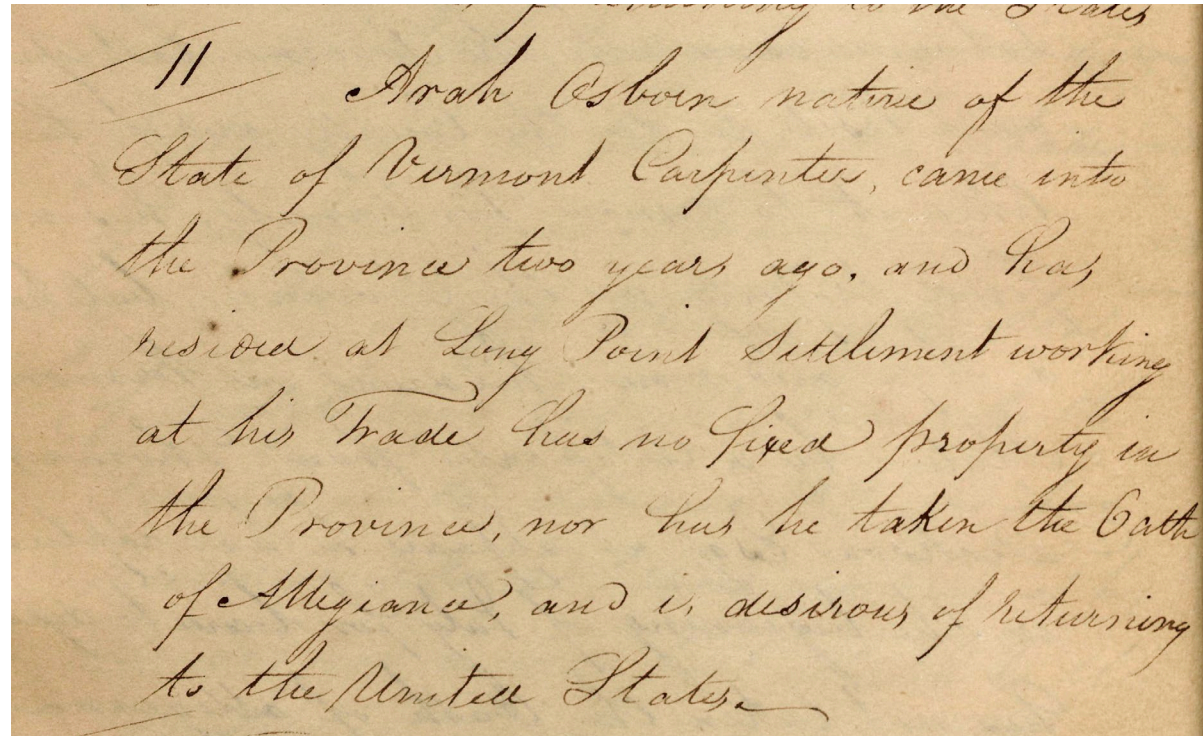 of returning to the States
11
Arah Osborn native of the
State of Vermont Carpenter, came into
the Province two years ago, and has
resided at Long Point Settlement working
at his Trade has no fixed property in
the Province, nor has he taken the Oath
of Allegiance, and is desirous of returning
to the United States.